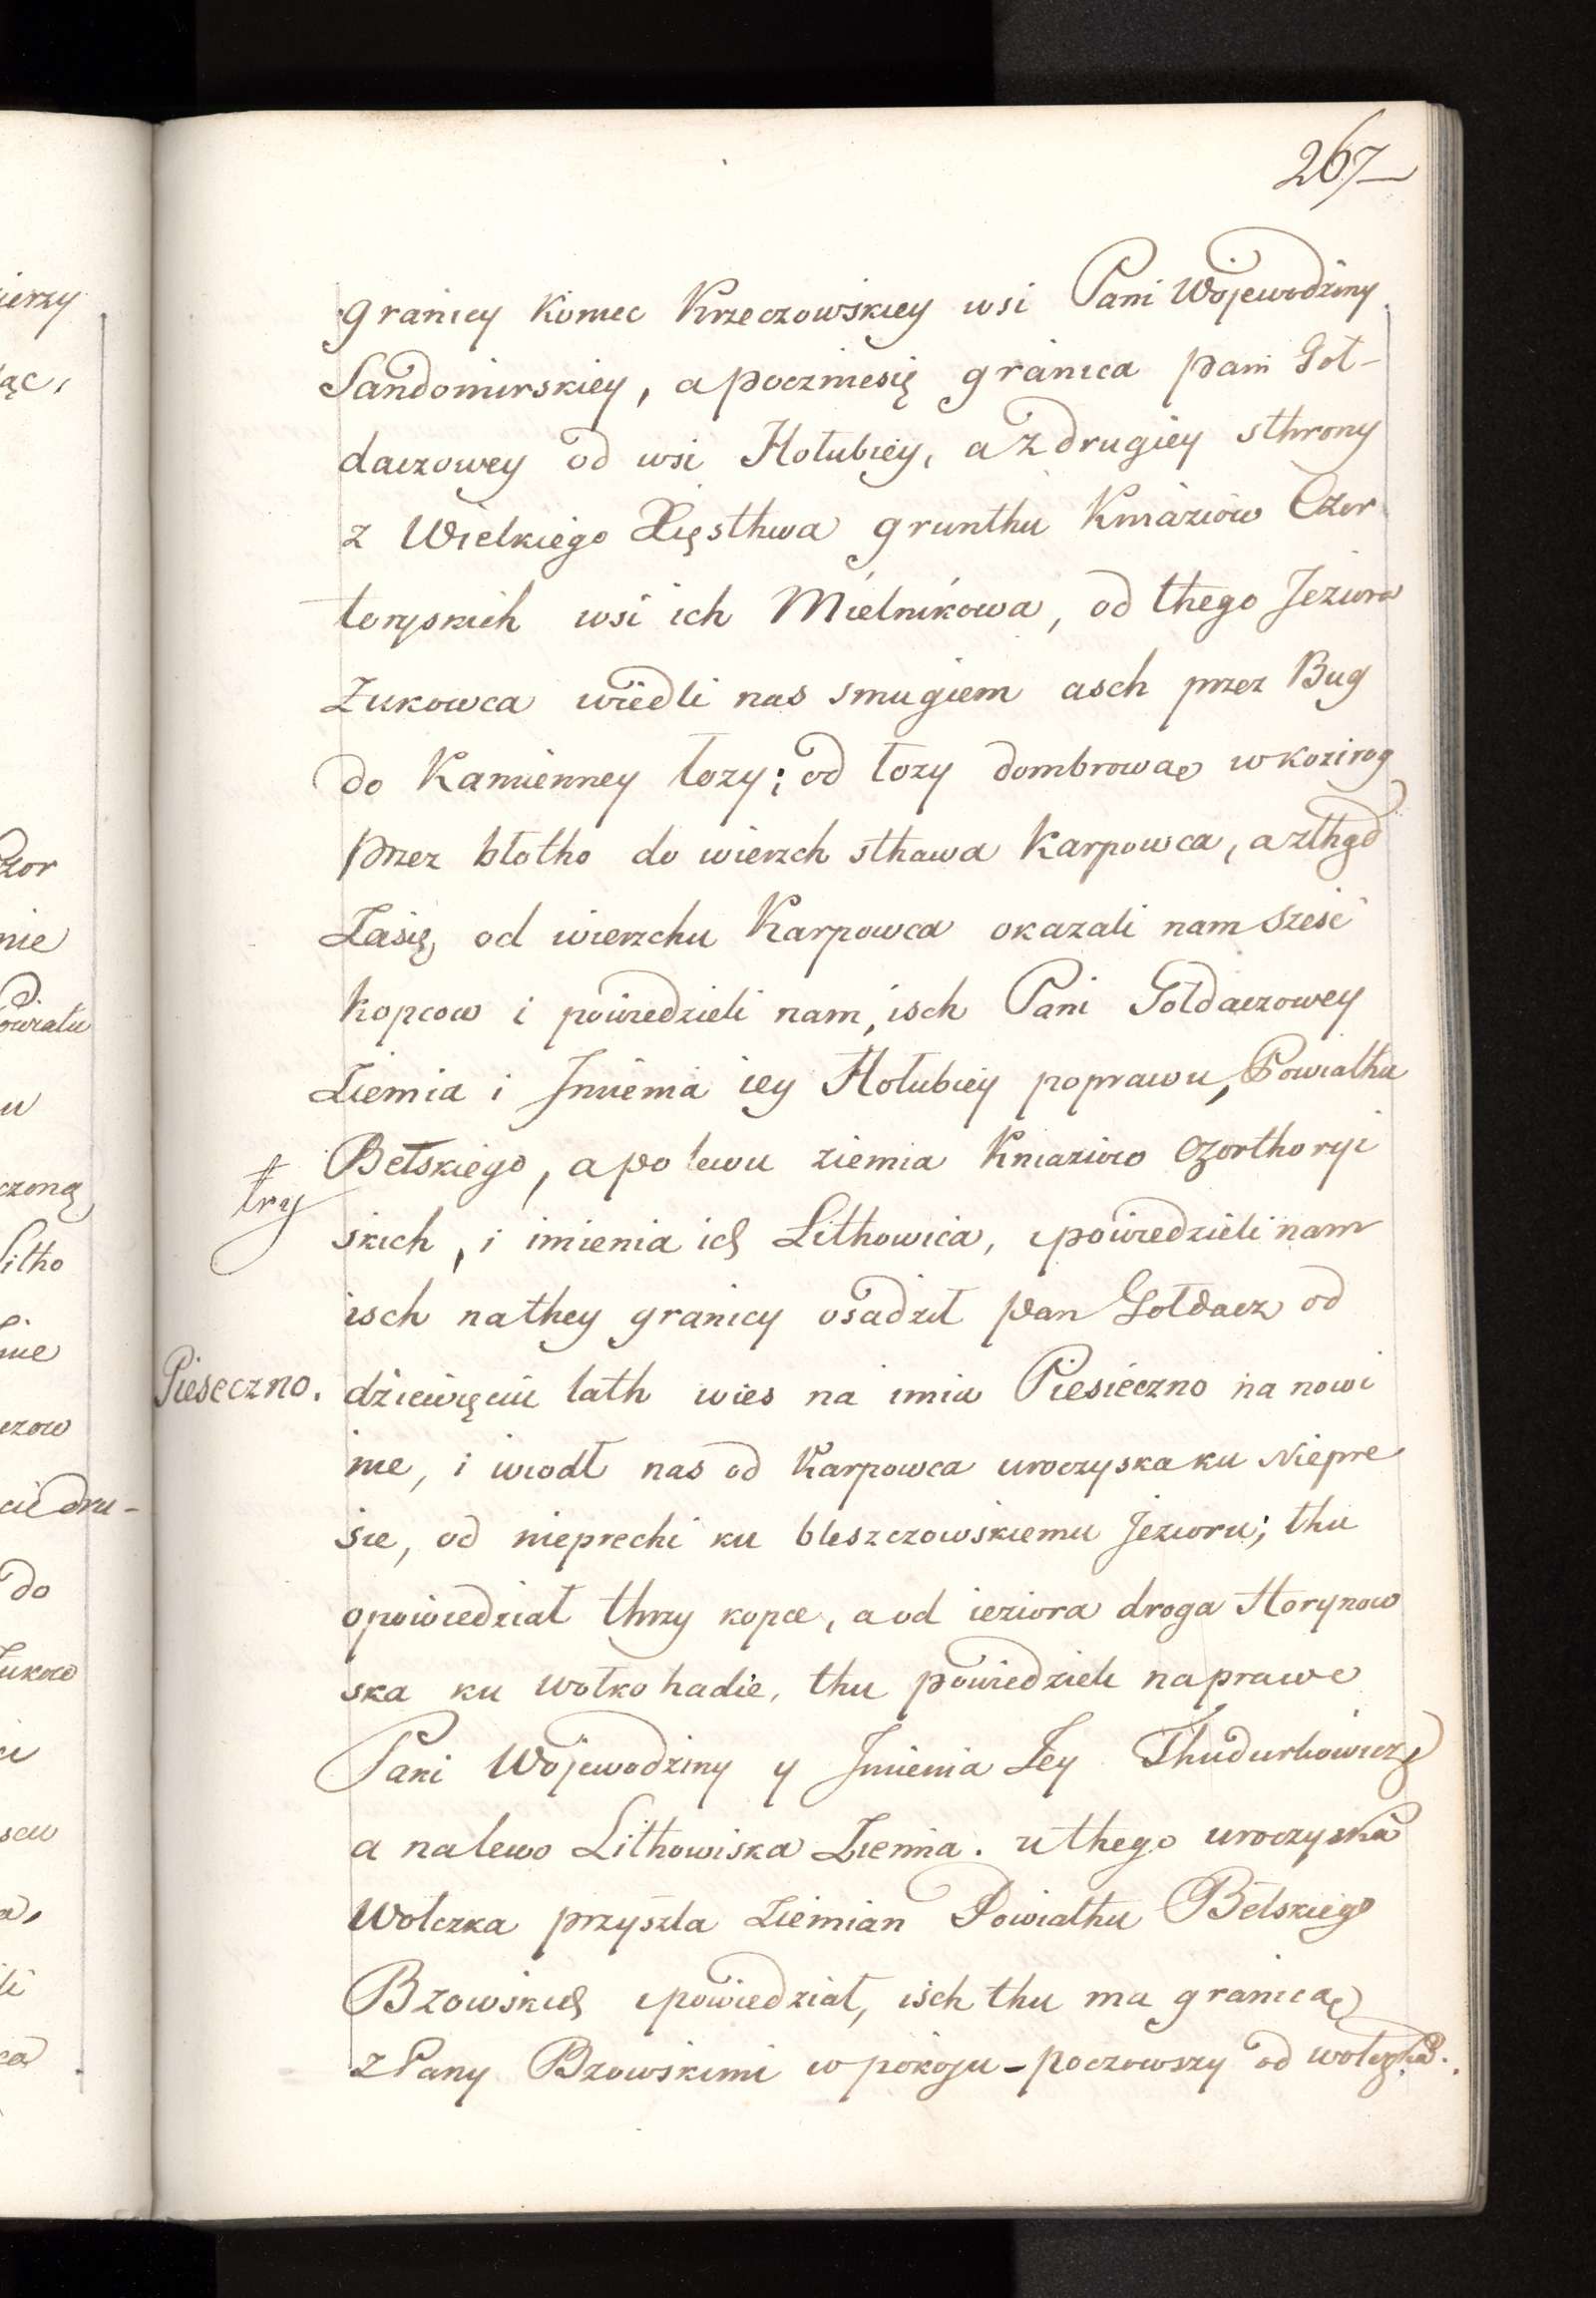 267
granicy koniec Krzeczowskiey wsi Pani Wojewodziny
Sandomirskiey, a poczniesię granica pani Goł-
daczowey od wsi Hołubiey, a z drugiey sthrony
z Wielkiego Xięsthwa grunthu Kniaziow Czor
toryskich wsi ich Mielnikowa, od thego Jeziora
Żukowca wiedli nas smugiem asch przez Bug
do Kamienney łozy; od łozy dombrową w kozirog
przez błotho do wierzch sthawa Karpowca, a zthąd
Zasię od wierzchu Karpowca okazali nam sześć
kopcow i powiedzieli nam, isch Pani Goldaczowey
Ziemia i Jmienia iey Hołubiey poprawu, Powiathu
Bełskiego, a po lewu ziemia Kniaziow Czorthoryi
try
skich, i imienia ich Lithowica, i powiedzieli nam
isch nathey granicy osadził pan Gołdacz od
Pieseczno.
dziewięciu lath wies na imiu Piesieczno na nowi
nie, i wiodł nas od Karpowca uroczyska ku Niepre
sie, od nieprechi ku bleszczowskiemu Jezioru; thu
opowiedział thrzy kopce, a od ieziora droga Horynow
ska ku wołkohadie, thu powiedzieli naprawe
Pani Wojewodziny y Jmienia Jey Thudurkowicze
a nalewo Lithowiska Ziemia. u thego uroczyska
Wołczka przyszła Ziemian Powiathu Bełskiego
Bzowskich i powiedział, isch thu ma granicą
z Pany Bzowskimi w pokoju – poczowszy od wołczka.